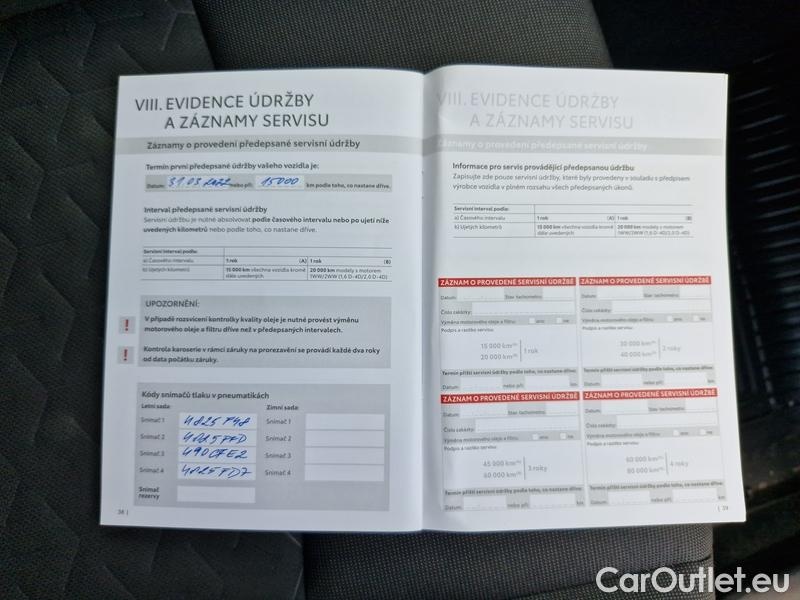 VIII. EVIDENCE ÚDRŽBY
A ZÁZNAMY SERVISU
Záznamy o provedení předepsané servisní údržby
Termín první předepsané údržby vašeho vozidla je:
Datum: 31.03.2022 nebo při: 15000 km podle toho, co nastane dříve.
Interval předepsané servisní údržby
Servisní údržbu je nutné absolvovat podle časového intervalu nebo po ujetí níže
uvedených kilometrů nebo podle toho, co nastane dříve.
Servisní interval podle:
a) Časového intervalu 1 rok (A) 1 rok (B)
b) Ujetých kilometrů 15 000 km všechna vozidla kromě dále uvedených 20 000 km modely s motorem 1WW/2WW (1,6 D-4D/2,0 D-4D)
UPOZORNĚNÍ:
! V případě rozsvícení kontrolky kvality oleje je nutné provést výměnu
motorového oleje a filtru dříve než v předepsaných intervalech.
! Kontrola karoserie v rámci záruky na prorezavění se provádí každé dva roky
od data počátku záruky.
Kódy snímačů tlaku v pneumatikách
Letní sada: Zimní sada:
Snímač 1 Snímač 1
Snímač 2 Snímač 2
Snímač 3 Snímač 3
Snímač 4 Snímač 4
Snímač
rezervy
38 |
VIII. EVIDENCE ÚDRŽBY
A ZÁZNAMY SERVISU
Záznamy o provedení předepsané servisní údržby
Informace pro servis provádějící předepsanou údržbu
Zapisujte zde pouze servisní údržby, které byly provedeny v souladu s předpisem
výrobce vozidla v plném rozsahu všech předepsaných úkonů.
Servisní interval podle:
a) Časového intervalu 1 rok (A) 1 rok (B)
b) Ujetých kilometrů 15 000 km všechna vozidla kromě dále uvedených 20 000 km modely s motorem 1WW/2WW (1,6 D-4D/2,0 D-4D)
ZÁZNAM O PROVEDENÉ SERVISNÍ ÚDRŽBĚ
Datum: Stav tachometru:
Číslo zakázky:
Výměna motorového oleje a filtru: ano ne
Podpis a razítko servisu:
15 000 km(A)
20 000 km(B) 1 rok
Termín příští servisní údržby podle toho, co nastane dříve:
Datum: nebo při: km
ZÁZNAM O PROVEDENÉ SERVISNÍ ÚDRŽBĚ
Datum: Stav tachometru:
Číslo zakázky:
Výměna motorového oleje a filtru: ano ne
Podpis a razítko servisu:
30 000 km(A)
40 000 km(B) 2 roky
Termín příští servisní údržby podle toho, co nastane dříve:
Datum: nebo při: km
ZÁZNAM O PROVEDENÉ SERVISNÍ ÚDRŽBĚ
Datum: Stav tachometru:
Číslo zakázky:
Výměna motorového oleje a filtru: ano ne
Podpis a razítko servisu:
45 000 km(A)
60 000 km(B) 3 roky
Termín příští servisní údržby podle toho, co nastane dříve:
Datum: nebo při: km
ZÁZNAM O PROVEDENÉ SERVISNÍ ÚDRŽBĚ
Datum: Stav tachometru:
Číslo zakázky:
Výměna motorového oleje a filtru: ano ne
Podpis a razítko servisu:
60 000 km(A)
80 000 km(B) 4 roky
Termín příští servisní údržby podle toho, co nastane dříve:
Datum: nebo při: km
| 39
CarOutlet.eu